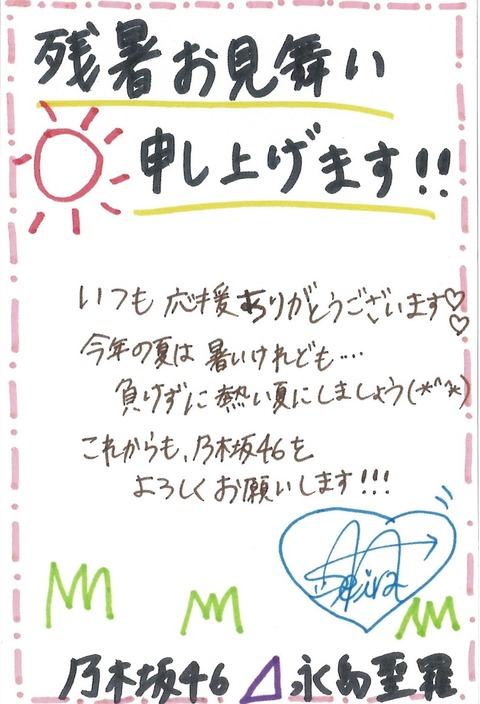 残暑お見舞い
申し上げます!!
いつも応援ありがとうございます♡♡
今年の夏は暑いけれども…
負けずに熱い夏にしましょう(*^^*)
これからも、乃木坂46を
よろしくお願いします!!!
Seira
乃木坂46 永島聖羅